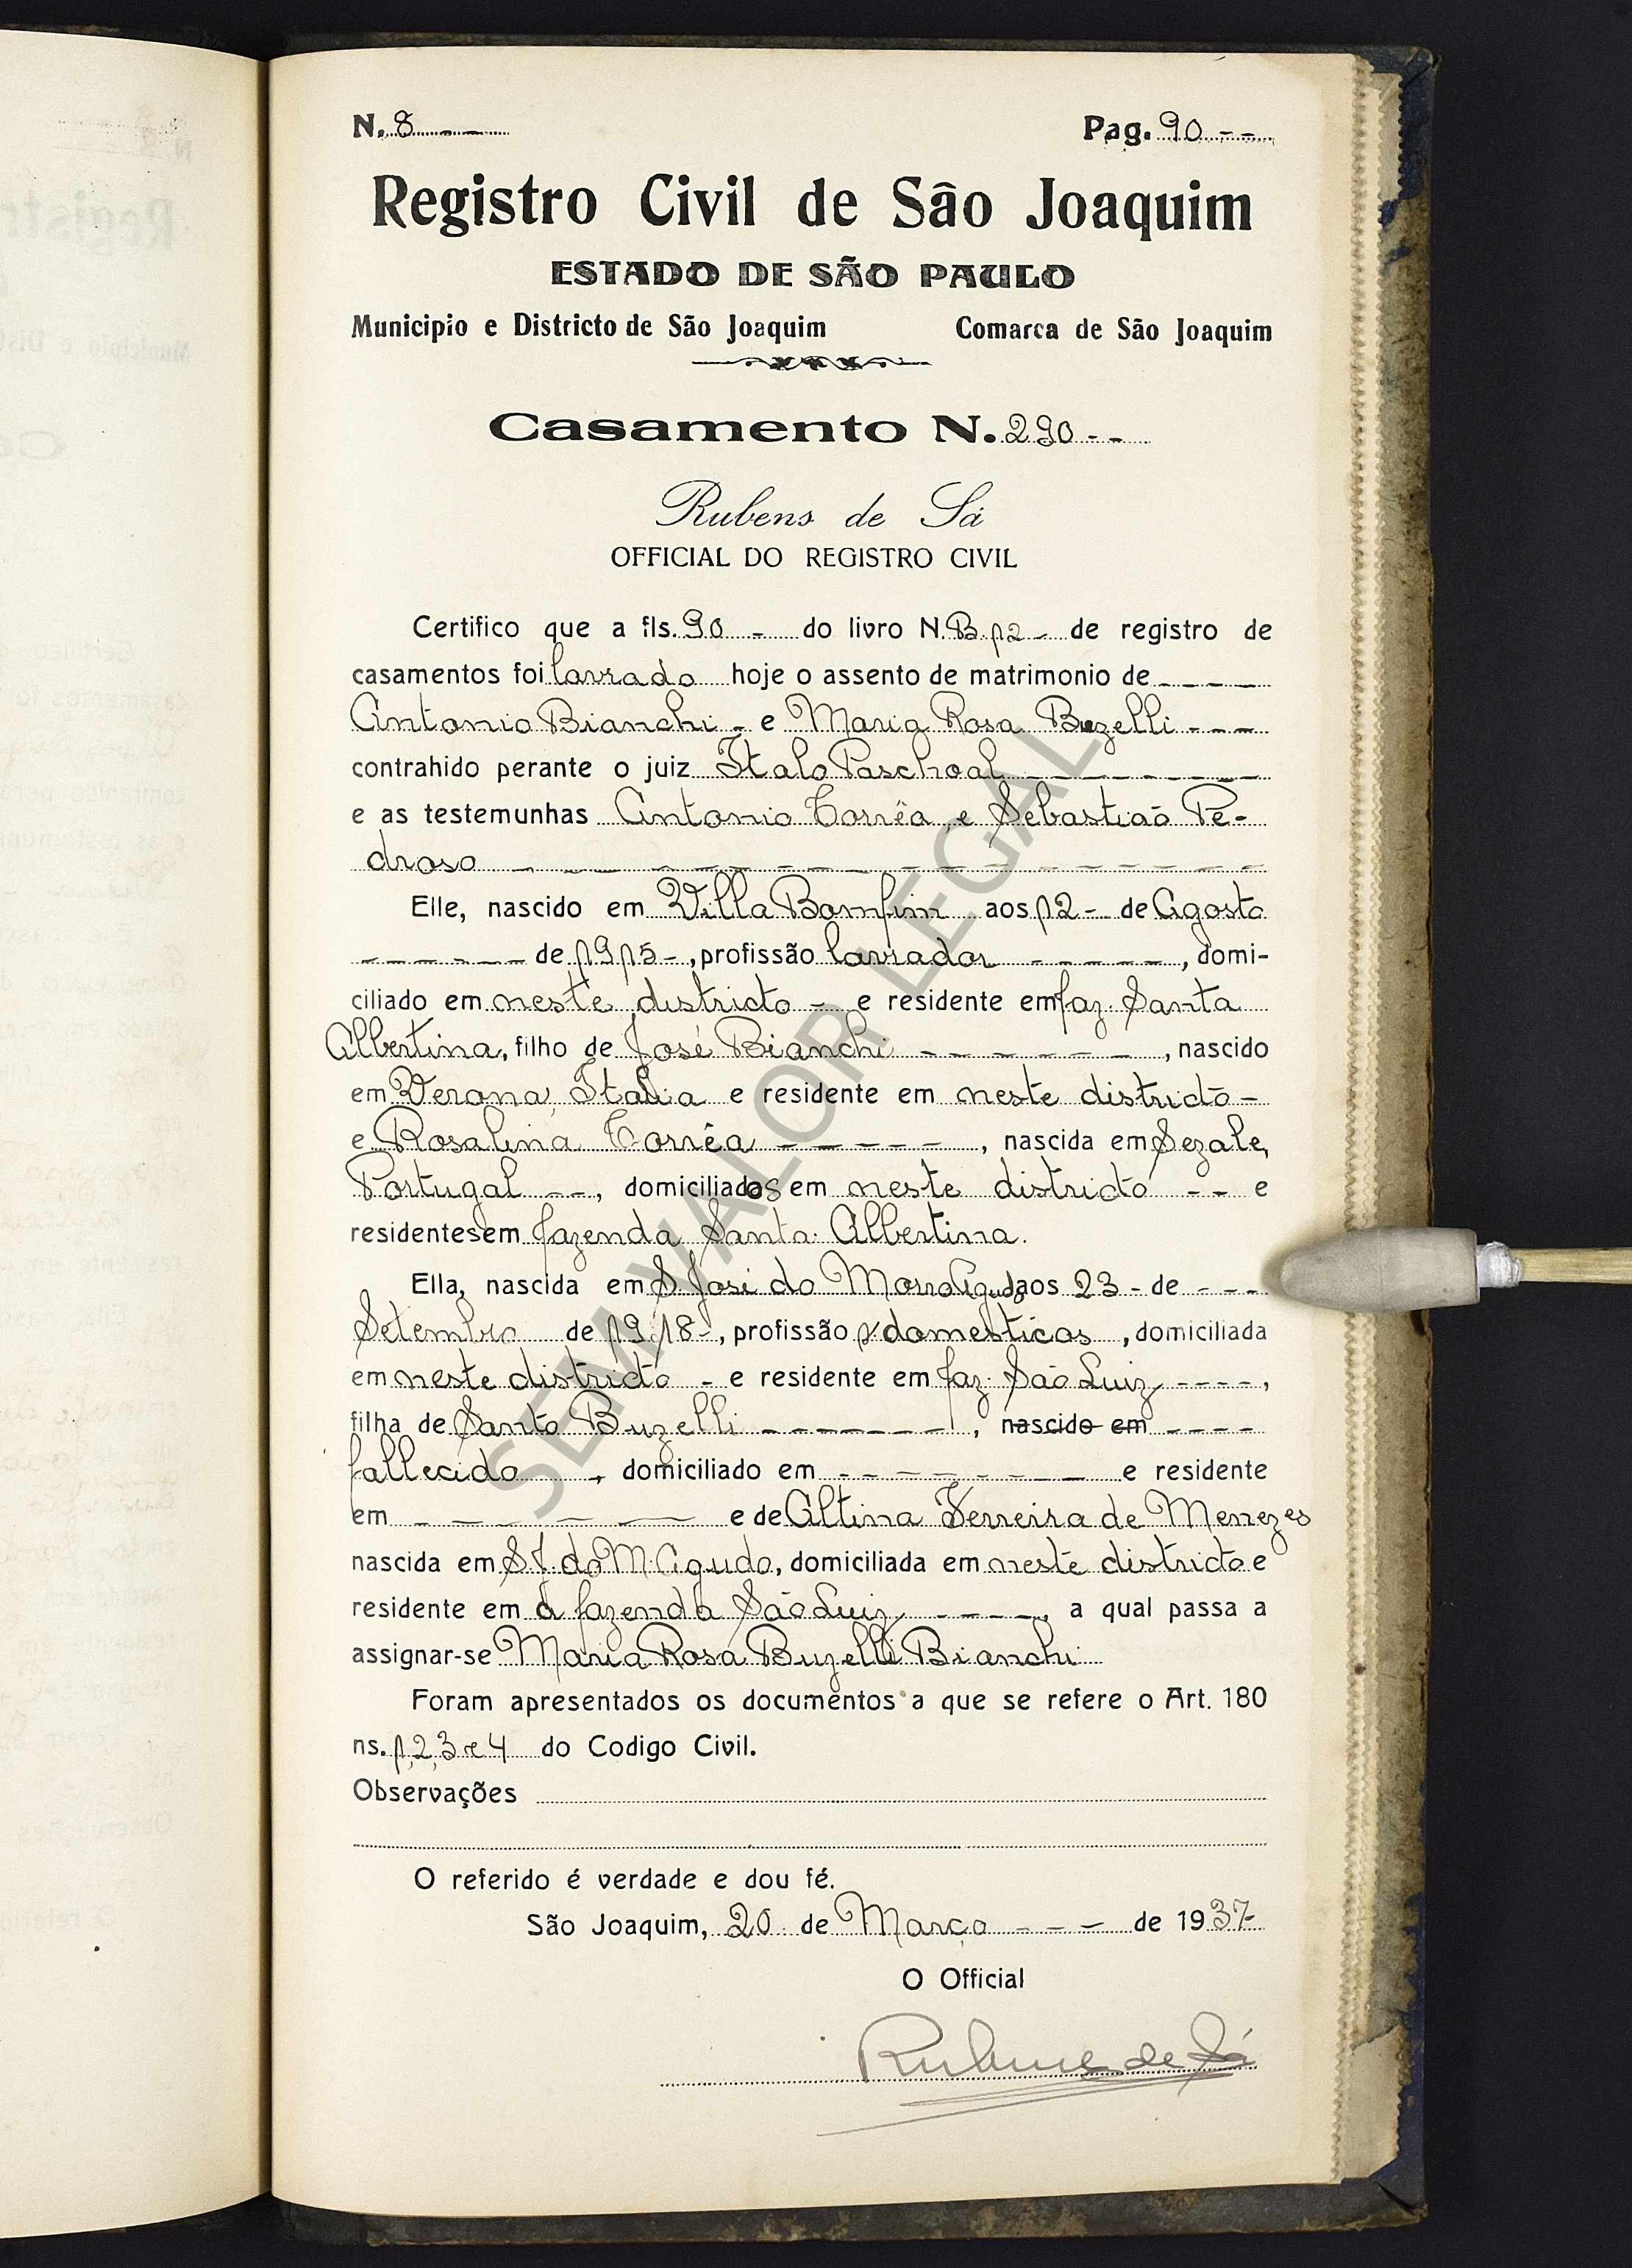 N. 8 Pag. 90
Registro Civil de São Joaquim
ESTADO DE SÃO PAULO
Municipio e Districto de São Joaquim Comarca de São Joaquim
Casamento N. 290
Rubens de Sá
OFFICIAL DO REGISTRO CIVIL
Certifico que a fls. 90 - do livro N. B. 12 - de registro de
casamentos foi lavrado hoje o assento de matrimonio de
Antonio Bianchi - e Maria Rosa Buzelli
contrahido perante o juiz Italo Paschoal
e as testemunhas Antonio Corrêa e Sebastião Pe-
droso
Elle, nascido em Villa Bomfim aos 12 - de Agosto
de 1915 -, profissão lavrador, domi-
ciliado em neste districto - e residente em faz. Santa
Albertina, filho de José Bianchi, nascido
em Verona, Italia e residente em neste districto -
e Rosalina Corrêa, nascida em Sezale,
Portugal, domiciliados em neste districto e
residentes em fazenda Santa Albertina.
Ella, nascida em S. José do Morro Agudo aos 23 - de
Setembro de 1918 -, profissão p/ domesticos, domiciliada
em neste districto - e residente em faz. São Luiz,
filha de Santo Buzelli, nascido em
fallecido, domiciliado em e residente
em e de Altina Ferreira de Menezes
nascida em S. J. do M. Agudo, domiciliada em neste districto e
residente em á fazenda São Luiz, a qual passa a
assignar-se Maria Rosa Buzelli Bianchi
Foram apresentados os documentos a que se refere o Art. 180
ns. 1, 2, 3 e 4 do Codigo Civil.
Observações
O referido é verdade e dou fé.
São Joaquim, 20 de Março de 1937
O Official
Rubens de Sá
SEM VALOR LEGAL